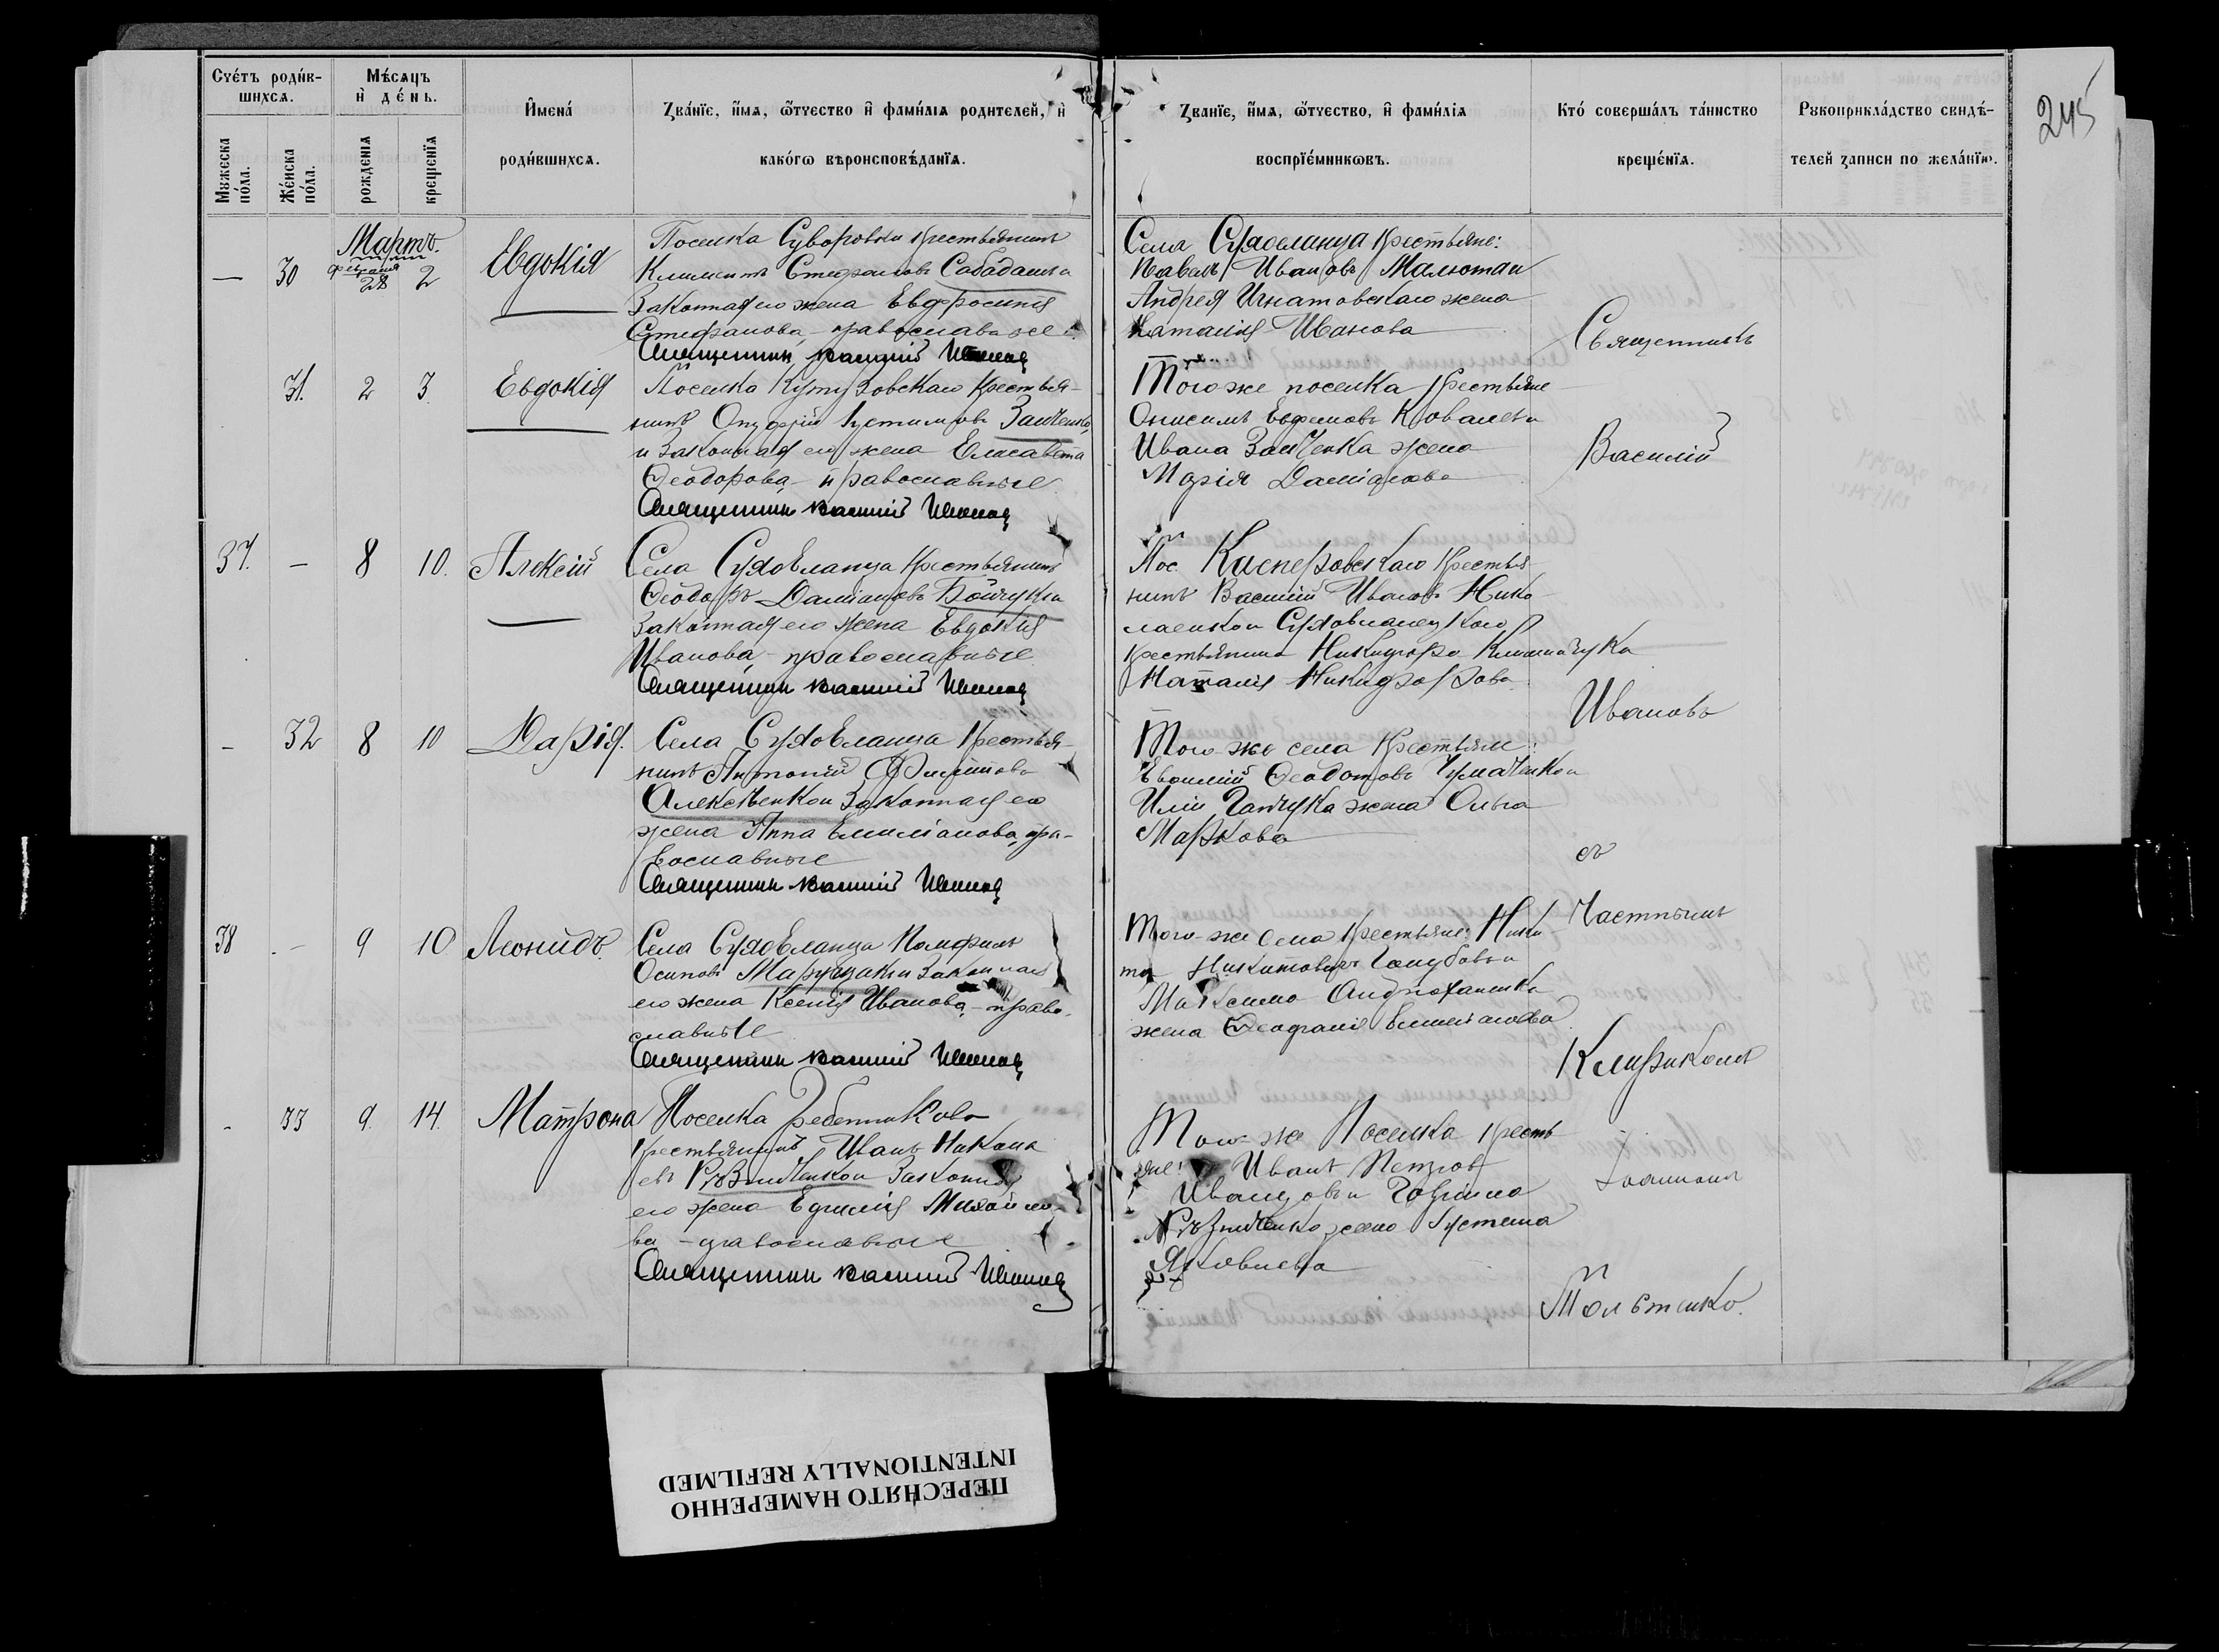 Счетъ родив-
шихся.
Мужеска
пола.
Женска
пола.
Мѣсяцъ
и день.
рожденія
крещенія
Имена
родившихся.
Званіе, имя, отчество и фамилія родителей, и
какого вѣроисповѣданія.
Званіе, имя, отчество, и фамилія
воспріемниковъ.
Кто совершалъ таинство
крещенія.
Рукоприкладство свидѣ-
телей записи по желанію.
245
Мартъ.
— 30 Февраля 28 2 Евдокія
Поселка Суворовки крестьянинъ
Климентъ Стефановъ Сабадашъ и
Законная его жена Евфросинія
Стефанова, православные.
Священникъ Василій Иванов
Села Сухоеланца Крестьяне:
Павелъ Ивановъ Малюта и
Андрея Игнатовскаго жена
Наталія Иванова
31. 2 3. Евдокія
Поселка Кутузовскаго Крестья-
нинъ Онуфрій Іустиновъ Заиченко,
и Законная его жена Елисавета
Ѳеодорова, православные
Священникъ Василій Иванов
Того же поселка Крестьяне
Онисимъ Евфимовъ Ковалевъ и
Ивана Заиченка жена
Марія Даміанова
37. — 8 10. Алексій
Села Сухоеланца Крестьянинъ
Ѳеодоръ Даміановъ Бойчукъ и
Законная его жена Евдокія
Иванова, православные
Священникъ Василій Иванов
Пос. Касперовскаго Крестья
нинъ Василій Ивановъ Нико
лаенко и Сухоеланецкого
крестьянина Никифора Климчука
Наталія Никифорова
— 32 8 10 Дарія.
Села Сухоеланца Крестья-
нинъ Антоній Филиповъ
Алексѣенко и Законная его
жена Анна Емиліанова, пра-
вославные
Священникъ Василій Иванов
Того-же села Крестьяне:
Евфимій Ѳеодотовъ Чумаченко и
Иліи Ганчука жена Ольга
Маркова
38 — 9 10 Леонидъ.
Села Сухоеланца Памфилъ
Осиповъ Марущакъ и Законная
его жена Ксенія Иванова, право-
славные
Священникъ Василій Иванов
Того-же Села Крестьяне: Ники-
та Никитовичъ Голубовъ и
Максима Андрюханенка
жена Ѳеофанія Емиліанова
- 33 9. 14. Матрона
Поселка Гребенниково
Крестьянинъ Иванъ Никола
евъ Рѣзниченко и Законная
его жена Евфимія Михайло-
ва - православные
Священникъ Василій Иванов
Того-же Поселка Кресть
яне: Иванъ Петровъ
Иванцовъ и Гавріила
Рѣзниченко жена Іустина
Яковлева
Священникъ
Василій
Ивановъ
съ
Частнымъ
Клирикомъ
Іоанномъ
Толстенко.
ПЕРЕСНЯТО НАМЕРЕННО
INTENTIONALLY REFILMED